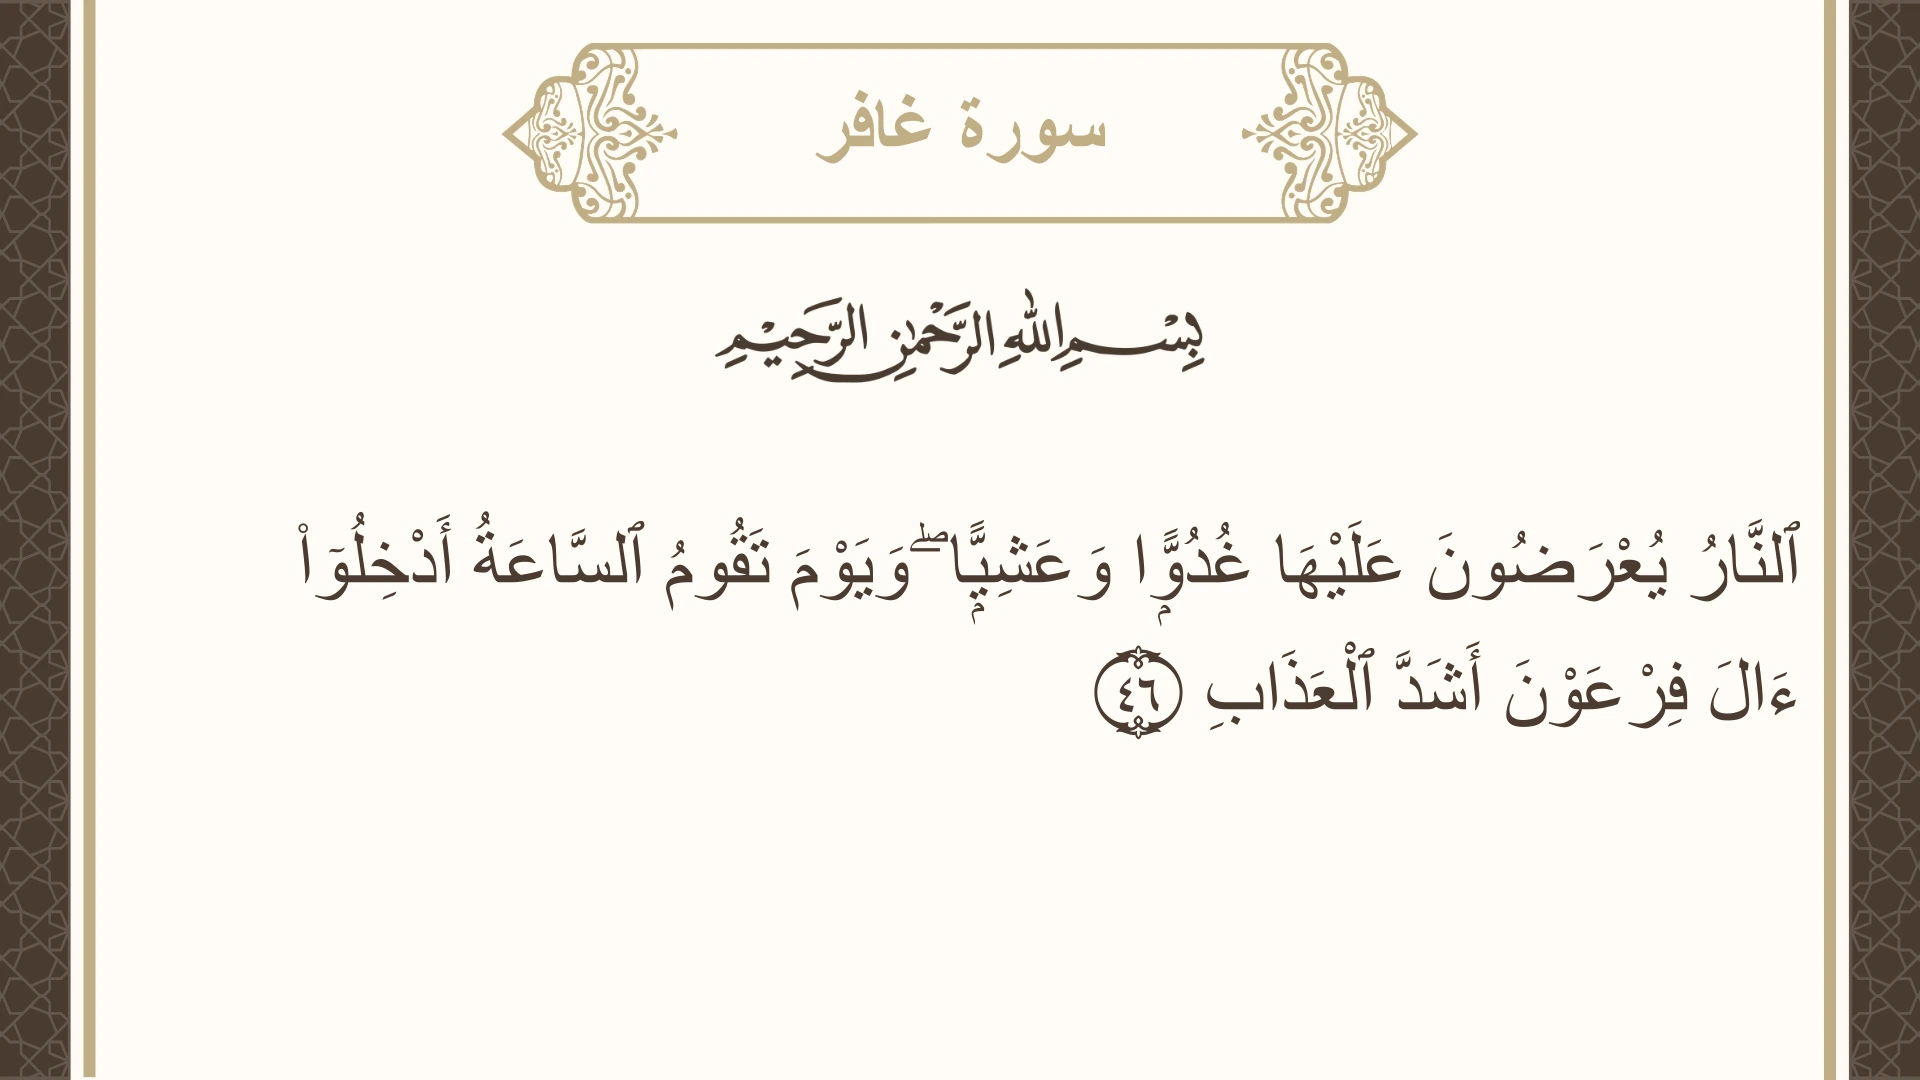 سورة غافر
بِسْمِ اللهِ الرَّحْمٰنِ الرَّحِيْمِ
ٱلنَّارُ يُعْرَضُونَ عَلَيْهَا غُدُوًّۭا وَعَشِيًّۭا ۖ وَيَوْمَ تَقُومُ ٱلسَّاعَةُ أَدْخِلُوٓا۟
ءَالَ فِرْعَوْنَ أَشَدَّ ٱلْعَذَابِ ٤٦